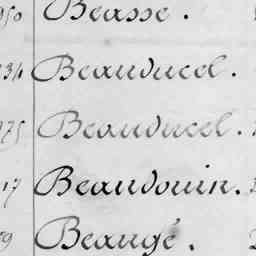 950 Beasse.
234 Beauducel.
275 Beauducel.
17 Beaudouin.
Beaugé.